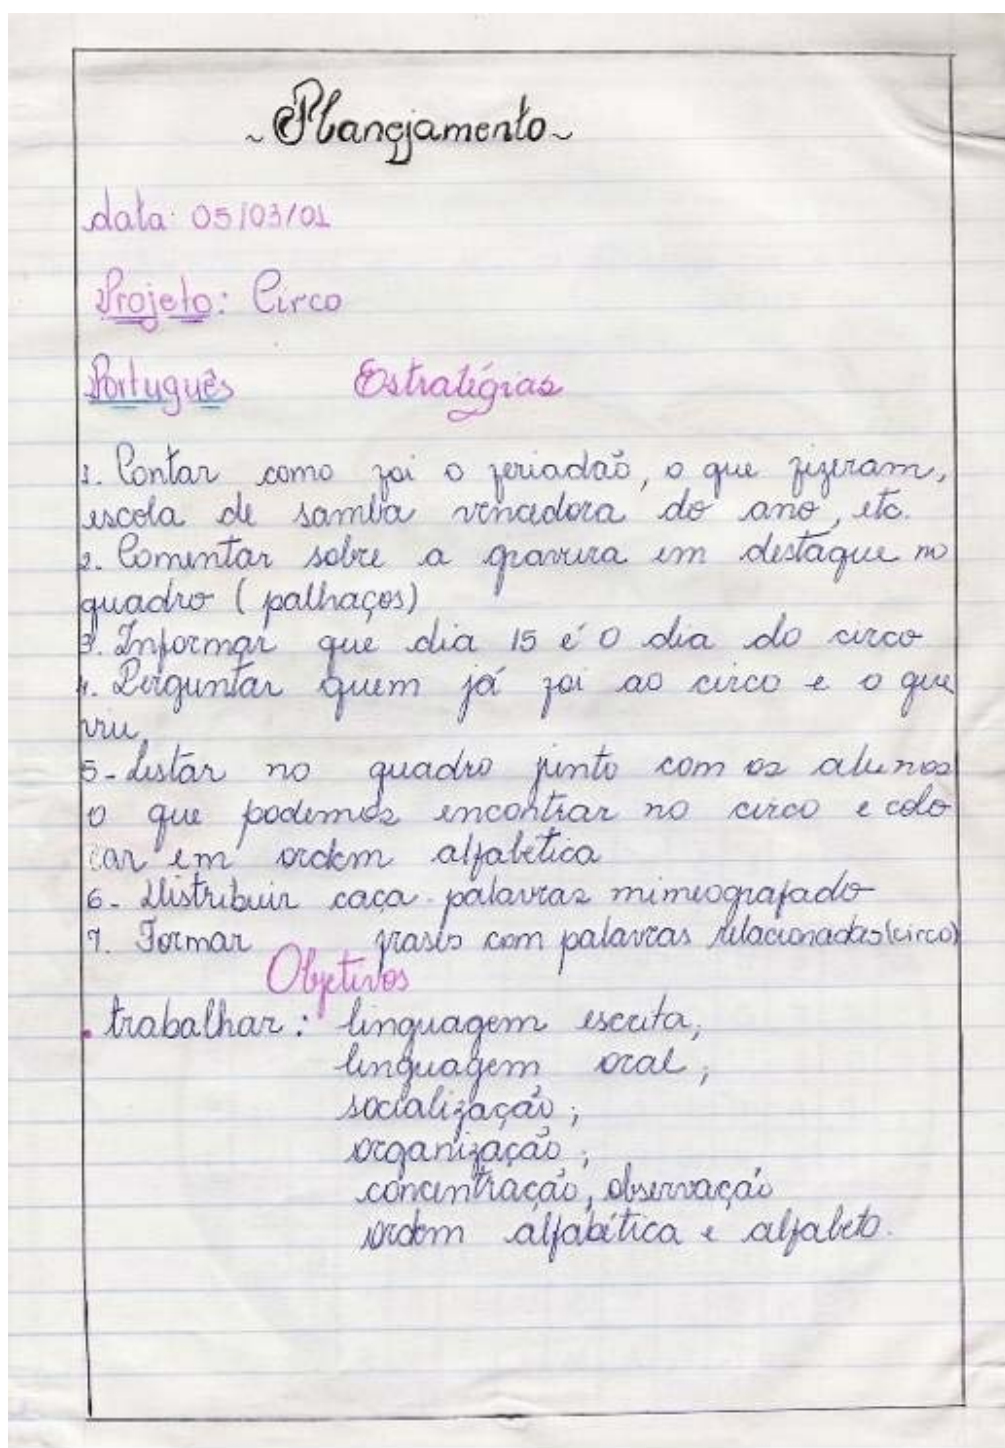 ~Planejamento~
data: 05/03/01
Projeto: Circo
Português Estratégias
1. Contar como foi o feriadão, o que fizeram,
escola de samba vencedora do ano, etc.
2. Comentar sobre a gravura em destaque no
quadro (palhaços)
3. Informar que dia 15 é o dia do circo
4. Perguntar quem já foi ao circo e o que
viu.
5- Listar no quadro junto com os alunos
o que podemos encontrar no circo e colo
car em ordem alfabetica
6- Distribuir caça-palavras mimeografado
7. Formar frases com palavras relacionadas(circo)
Objetivos
. trabalhar: linguagem escrita;
linguagem oral;
socialização;
organização;
concentração, observação
ordem alfabética e alfabeto.